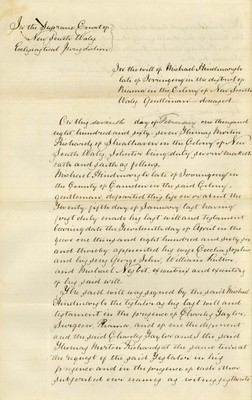 In the Supreme Court of
New South Wales
Ecclesiastical Jurisdiction
In the will of Michael Hindmarsh
late of Gerringong in the district of
Kiama in the Colony of New South
Wales Gentleman deceased
On this seventh day of February one thousand
eight hundred and sixty seven Thomas Morton
Richards of Shoalhaven in the Colony of New
South Wales Solicitor being duly sworn maketh
oath and saith as follows
Michael Hindmarsh late of Gerringong in
the County of Camden in the said Colony
gentleman departed this life on or about the
Twenty fifth day of January last having
first duly made his last will and testament
bearing date the thirteenth day of April in the
year one thousand eight hundred and sixty six
and thereby appointed his wife Cecilia Sophia
and his sons George John, William Rutter
and Michael Nesbit executrix and executors
of his said will.
The said will was signed by the said Michael
Hindmarsh the testator as his last will and
testament in the presence of Charles Taylor,
Surgeon, Kiama, and of me the deponent
and the said Charles Taylor and I the said
Thomas Morton Richards at the same time at
the request of the said Testator in his
presence and in the presence of each other
subscribed our names as witnesses